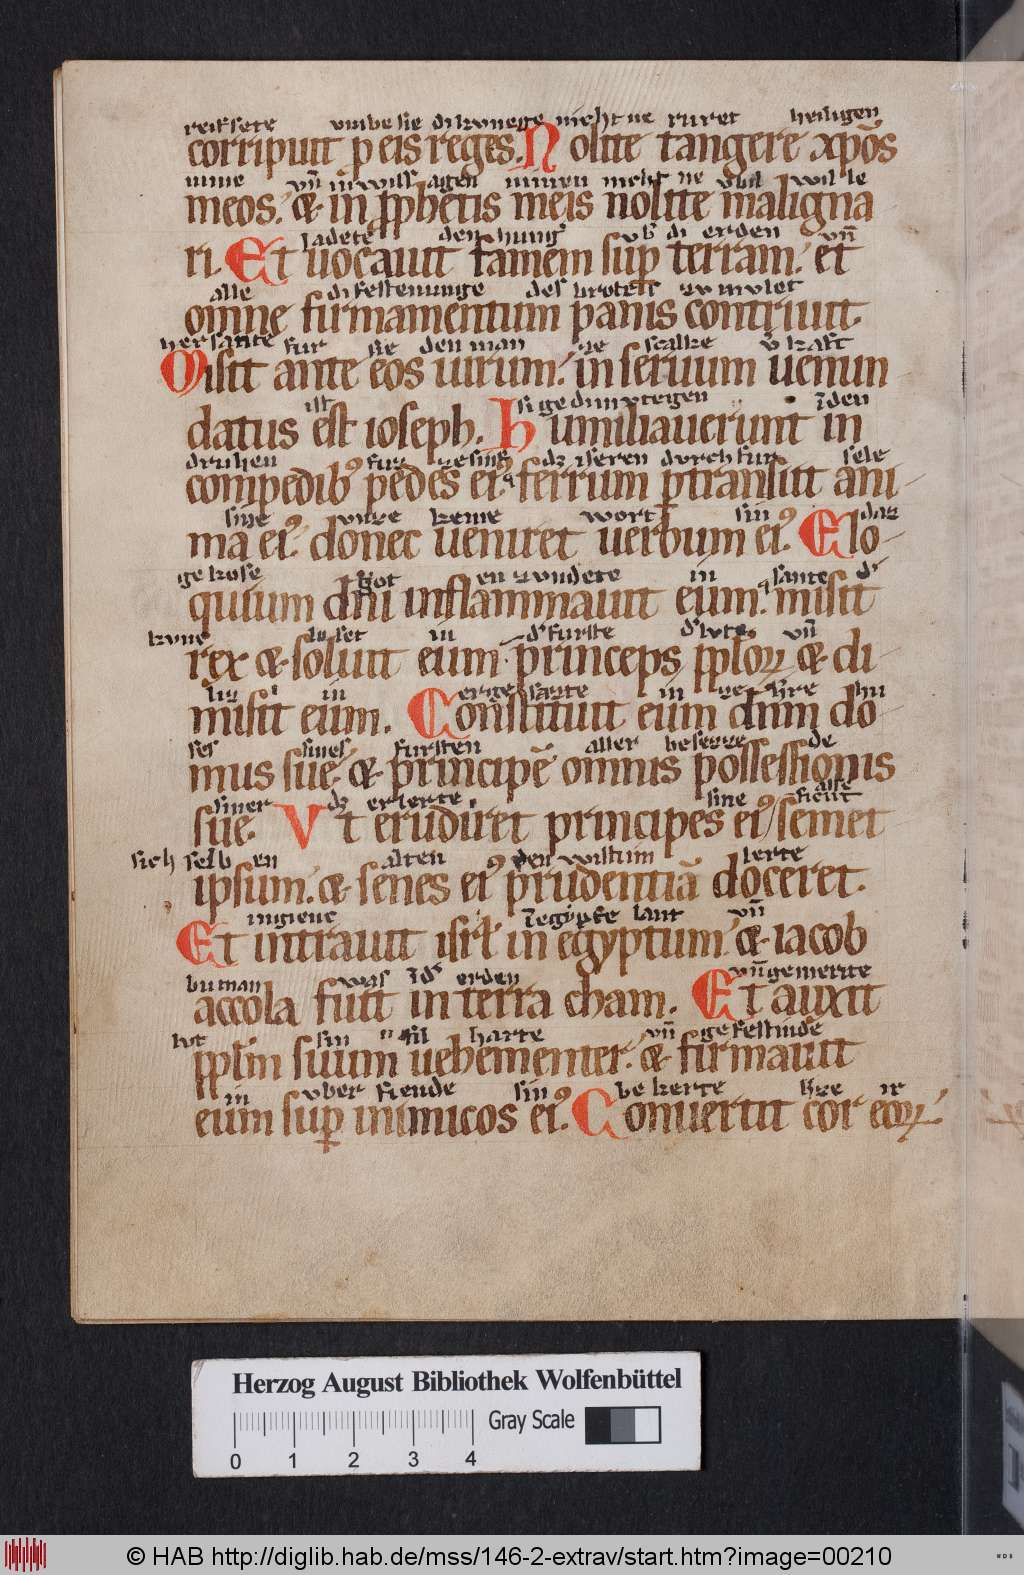 reifsete vmbe sie di kvnege nicht ne rvret heiligen
corripuit ꝑ eis reges. Nolite tangere xp̄os
mine vn̄ in wiss agen minen nicht ne vbil wille
meos. ⁊ in ꝓphetis meis nolite maligna
ladete den hung vb di erden vn̄
ri. Et uocauit famem suꝑ terram. et
alle di festenunge des brotes
omne firmamentum panis contriuit.
her sante fur sie den man ze scalke v̄ kaft
Misit ante eos uirum. in seruum uenun
ist si gedimvtegen īden
datus est ioseph. Humiliauerunt in
druhen sine dz iseren durch fur sele
compedibꝯ pedes eiꝯ ferrum ꝑtransiit ani-
sine vnze keme wort sin daz
ma eiꝯ. donec ueniret uerbum eiꝯ. Elo-
gekose got en zvndete in sante di
quium dn̄i inflammauit eum. misit
kvne loset in d furste d lvte vn̄
rex ⁊ soluit eum. princeps ꝓploꝝ ⁊ di-
liz in er gesazte in ze hre hu
misit eum. Constituit eum dn̄m do-
ses sines fursten aller besezze de
mus sue. ⁊ principē omnis possessionis
siner dz er lerte sine alse
sicut
sue. Vt erudiret principes eiꝯ semet
sich selb en alten den wistum lerte
ipsum. ⁊ senes eiꝯ prudentiā doceret.
ingienc ī egypte lant vn̄
Et intrauit isrl̄ in egyptum. ⁊ iacob
buman was īd erden vn̄ gemerite
accola fuit in terra cham. Et auxit
lvt sin harte vn̄ gefestinde
ꝓpl̄m suum uehementer. ⁊ firmauit
in vber fiende sin bekerte hze ir
eum suꝑ inimicos eiꝯ. Conuertit cor eoꝝ
Herzog August Bibliothek Wolfenbüttel
Gray Scale
0 1 2 3 4
© HAB http://diglib.hab.de/mss/146-2-extrav/start.htm?image=00210